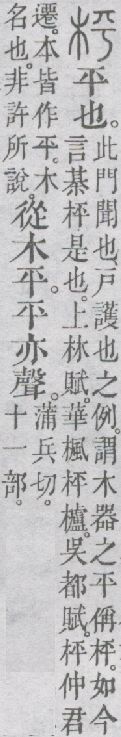 枰平也。此門聞也、戶護也之例。謂木器之平偁枰。如今言棊枰是也。上林賦。華楓枰櫨。吳都賦。枰仲君
遷。本皆作平。木名也。非許所說。從木平。平亦聲。蒲兵切。十一部。